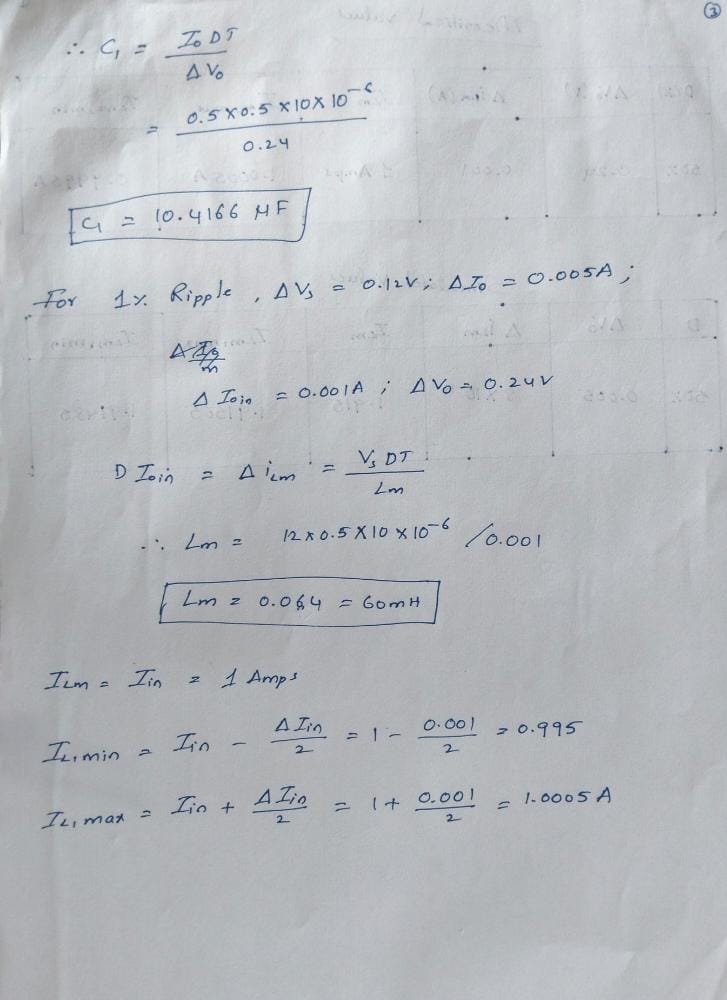 ③
∴ C₁ = I₀ DT / ΔV₀
= 0.5 x 0.5 x 10 x 10⁻⁶ / 0.24
C₁ = 10.4166 μF
For 1% Ripple, ΔVs = 0.12V; ΔI₀ = 0.005A;
ΔI₀in = 0.001A; ΔV₀ = 0.24V
D I₀in = ΔiLm = Vs DT / Lm
∴ Lm = 12 x 0.5 x 10 x 10⁻⁶ / 0.001
Lm = 0.064 = 60mH
ILm = Iin = 1 Amps
IL1min = Iin - ΔIin / 2 = 1 - 0.001 / 2 = 0.995
IL1max = Iin + ΔIin / 2 = 1 + 0.001 / 2 = 1.0005 A